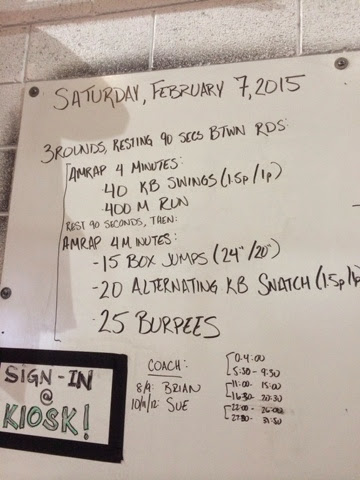 SATURDAY, FEBRUARY 7, 2015
3 ROUNDS, RESTING 90 SECS BTWN RDS:
AMRAP 4 MINUTES:
- 40 KB SWINGS (1.5p/1p)
- 400 M RUN
REST 90 SECONDS, THEN:
AMRAP 4 MINUTES:
- 15 BOX JUMPS (24"/20")
- 20 ALTERNATING KB SNATCH (1.5p/1p
- 25 BURPEES
SIGN-IN
@
KIOSK!
COACH:
8/9: BRIAN
10/11/12: SUE
0-4:00
5:30-9:30
11:00-15:00
16:30-20:30
22:00-26:00
27:30-31:30